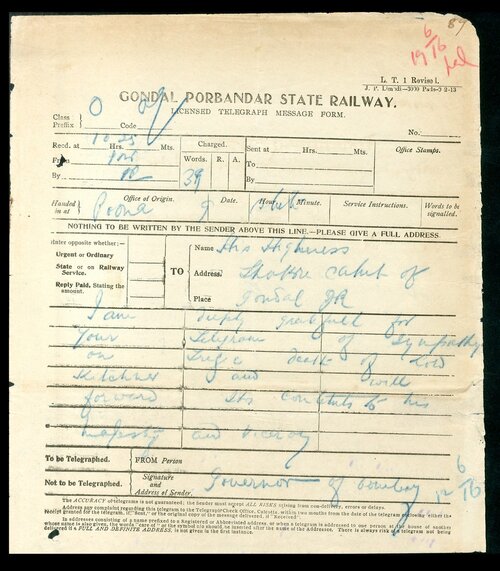 89
6/16
19
L. T. 1 Revised.
J. P. Limodi—5000 Pads-9 2-13
GONDAL PORBANDAR STATE RAILWAY.
LICENSED TELEGRAPH MESSAGE FORM.
Class
Prefix O Code
No.
Recd. at 10-25 Hrs. Mts.
From
By
Charged.
Words. R. A.
39
Sent at Hrs. Mts.
To
By
Office Stamps.
Handed in at
Office of Origin. Date. Hour. Minute. Service Instructions. Words to be signalled.
Poona 9
NOTHING TO BE WRITTEN BY THE SENDER ABOVE THIS LINE.—PLEASE GIVE A FULL ADDRESS.
Enter opposite whether:—
Urgent or Ordinary
State or on Railway Service.
Reply Paid. Stating the amount.
TO
Name His Highness
Address. Thakore Saheb of
Place Gondal
I am deeply gratefull for
Your telegram of Sympathy
on tragic death of Lord
Kitchner and will
forward its contents to his
majesty and viceroy
To be Telegraphed. FROM Person
Governor of Bombay
Not to be Telegraphed. Signature and Address of Sender.
12 6/16
The ACCURACY of telegrams is not guaranteed; the Sender must accept ALL RISKS arising from non-delivery, errors or delays.
Address any complaint regarding this telegram to the Telegraph Check Office, Calcutta, within two months from the date of the telegram enclosing either the
Receipt granted for the telegram, if "Sent," or the original copy of the message delivered, if "Received".
In addresses consisting of a name prefixed to a Registered or Abbreviated address, or when a telegram is addressed to one person at the house of another
whose name is also given, the words "care of" or the symbol c/o should be inserted after the name of the Addressee. There is always risk of a telegram not being
delivered if a FULL AND DEFINITE ADDRESS, is not given in the first instance.